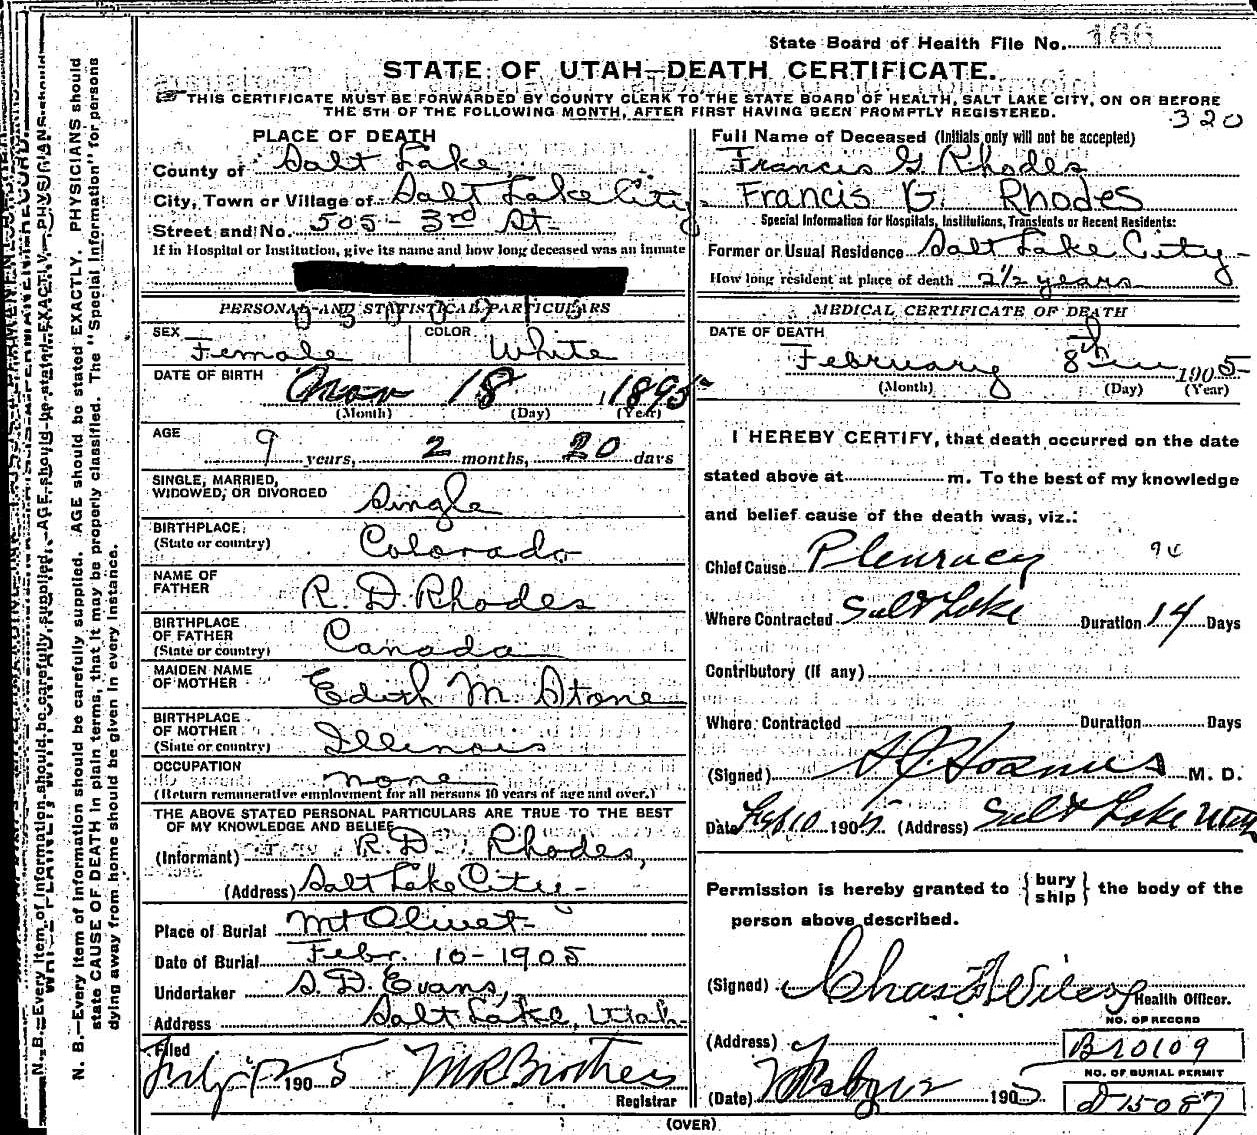 State Board of Health File No. 166
STATE OF UTAH—DEATH CERTIFICATE.
THIS CERTIFICATE MUST BE FORWARDED BY COUNTY CLERK TO THE STATE BOARD OF HEALTH, SALT LAKE CITY, ON OR BEFORE
THE 5TH OF THE FOLLOWING MONTH, AFTER FIRST HAVING BEEN PROMPTLY REGISTERED.
320
PLACE OF DEATH
County of Salt Lake
City, Town or Village of Salt Lake City
Street and No. 505 - 3rd St-
If in Hospital or Institution, give its name and how long deceased was an inmate
PERSONAL AND STATISTICAL PARTICULARS
SEX Female COLOR White
DATE OF BIRTH Nov 18 1895
(Month) (Day) (Year)
AGE 9 years, 2 months, 20 days
SINGLE, MARRIED,
WIDOWED, OR DIVORCED Single
BIRTHPLACE
(State or country) Colorado
NAME OF
FATHER R. D. Rhodes
BIRTHPLACE
OF FATHER
(State or country) Canada
MAIDEN NAME
OF MOTHER Edith M. Stone
BIRTHPLACE
OF MOTHER
(State or country) Illinois
OCCUPATION none
(Return remunerative employment for all persons 10 years of age and over.)
THE ABOVE STATED PERSONAL PARTICULARS ARE TRUE TO THE BEST
OF MY KNOWLEDGE AND BELIEF
(Informant) R. D. Rhodes,
(Address) Salt Lake City-
Place of Burial Mt Olivet-
Date of Burial Febr. 10-1905
Undertaker S. D. Evans,
Address Salt Lake, Utah-
Filed 1905
Registrar
Full Name of Deceased (Initials only will not be accepted)
Francis G Rhodes
Francis G. Rhodes
Special Information for Hospitals, Institutions, Transients or Recent Residents:
Former or Usual Residence Salt Lake City-
How long resident at place of death 2 1/2 years
MEDICAL CERTIFICATE OF DEATH
DATE OF DEATH
February 8th 1905-
(Month) (Day) (Year)
I HEREBY CERTIFY, that death occurred on the date
stated above at m. To the best of my knowledge
and belief cause of the death was, viz.:
Chief Cause Pleuracy
Where Contracted Salt Lake Duration 14 Days
Contributory (if any)
Where Contracted Duration Days
(Signed) M. D.
Date Feb 10 1905 (Address) Salt Lake Utah
Permission is hereby granted to {bury
ship} the body of the
person above described.
(Signed) Chas Health Officer.
NO. OF RECORD
(Address) B10109
NO. OF BURIAL PERMIT
(Date) 1905 D15087
(OVER)
N. B.—Every item of information should be carefully supplied. AGE should be stated EXACTLY. PHYSICIANS should
state CAUSE OF DEATH in plain terms, that it may be properly classified. The "Special Information" for persons
dying away from home should be given in every instance.